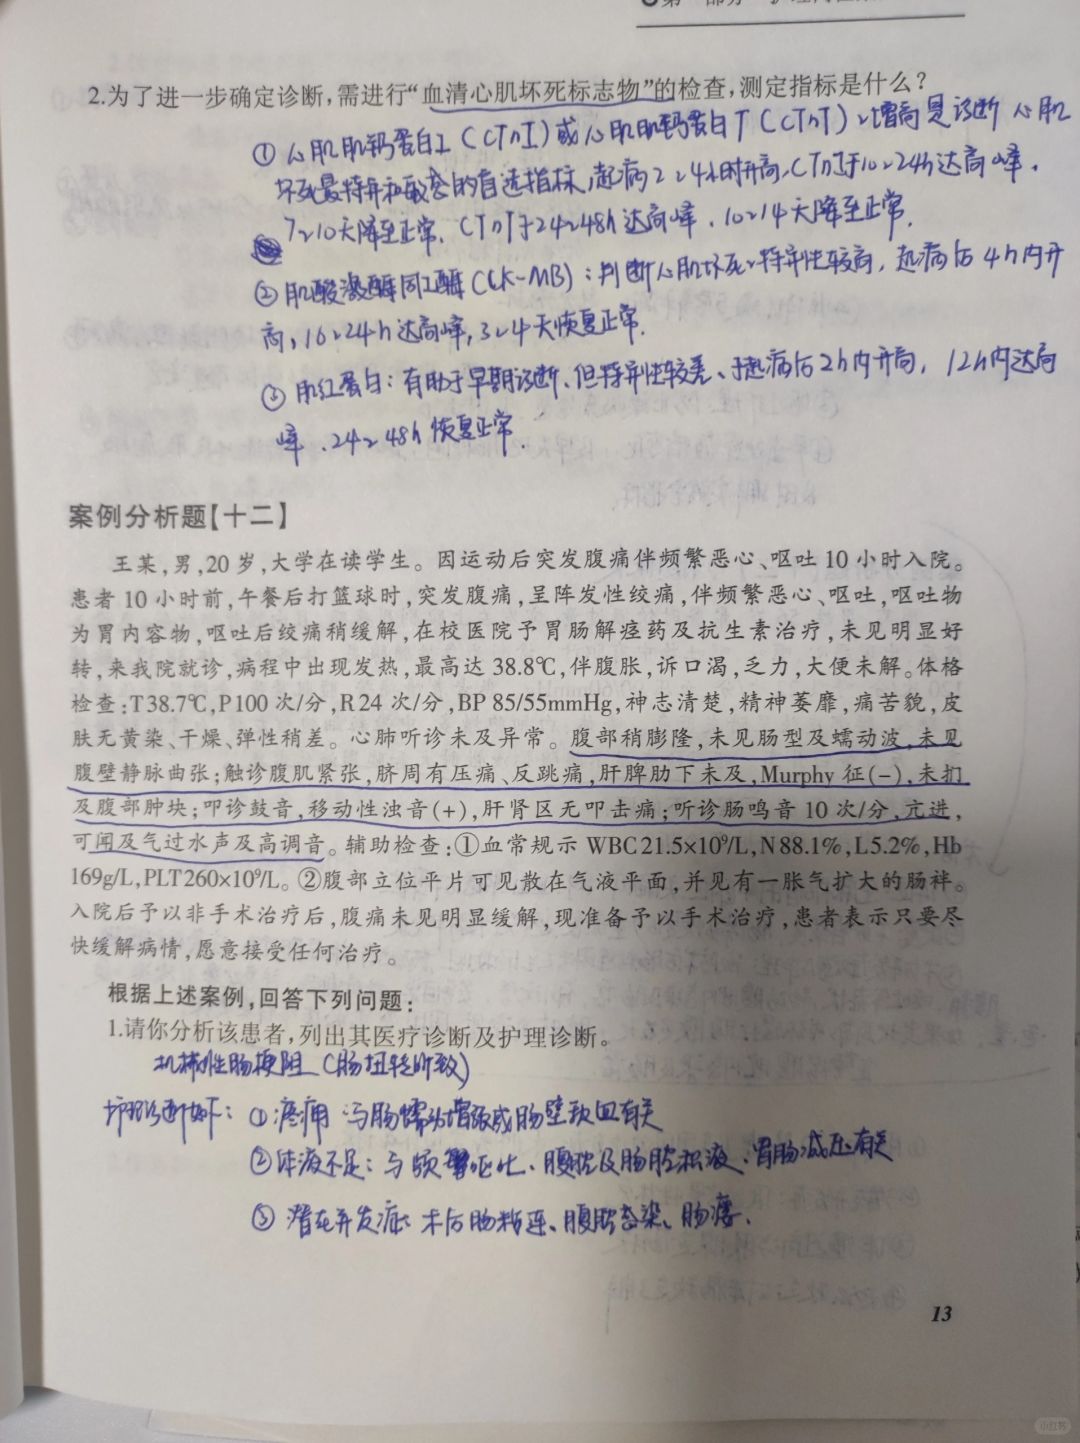 2.为了进一步确定诊断,需进行“血清心肌坏死标志物”的检查,测定指标是什么?
① 心肌肌钙蛋白I(CTnI)或心肌肌钙蛋白T(CTnT):增高是诊断心肌
坏死最特异和敏感的首选指标,起病2~4小时升高,CTnI于10~24h达高峰,
7~10天降至正常,CTnT于24~48h达高峰,10~14天降至正常.
② 肌酸激酶同工酶(CK-MB):判断心肌坏死特异性较高,起病后4h内升
高,16~24h达高峰,3~4天恢复正常.
③ 肌红蛋白:有助于早期诊断、但特异性较差、于起病后2h内升高,12h内达高
峰、24~48h恢复正常.
案例分析题【十二】
王某,男,20岁,大学在读学生。因运动后突发腹痛伴频繁恶心、呕吐10小时入院。
患者10小时前,午餐后打篮球时,突发腹痛,呈阵发性绞痛,伴频繁恶心、呕吐,呕吐物
为胃内容物,呕吐后绞痛稍缓解,在校医院予胃肠解痉药及抗生素治疗,未见明显好
转,来我院就诊,病程中出现发热,最高达38.8℃,伴腹胀,诉口渴,乏力,大便未解。体格
检查:T38.7℃,P100次/分,R24次/分,BP 85/55mmHg,神志清楚,精神萎靡,痛苦貌,皮
肤无黄染、干燥、弹性稍差。心肺听诊未及异常。腹部稍膨隆,未见肠型及蠕动波,未见
腹壁静脉曲张;触诊腹肌紧张,脐周有压痛、反跳痛,肝脾肋下未及,Murphy征(-),未扪
及腹部肿块;叩诊鼓音,移动性浊音(+),肝肾区无叩击痛;听诊肠鸣音10次/分,亢进,
可闻及气过水声及高调音。辅助检查:①血常规示WBC21.5×10⁹/L,N88.1%,L5.2%,Hb
169g/L,PLT260×10⁹/L。②腹部立位平片可见散在气液平面,并见有一胀气扩大的肠袢。
入院后予以非手术治疗后,腹痛未见明显缓解,现准备予以手术治疗,患者表示只要尽
快缓解病情,愿意接受任何治疗。
根据上述案例,回答下列问题:
1.请你分析该患者,列出其医疗诊断及护理诊断。
机械性肠梗阻(肠扭转所致)
护理诊断如下:①疼痛 与肠蠕动增强或肠壁缺血有关
②体液不足:与频繁呕吐、腹腔及肠腔积液、胃肠减压有关
③ 潜在并发症:术后肠粘连、腹腔感染、肠瘘.
13
小红书